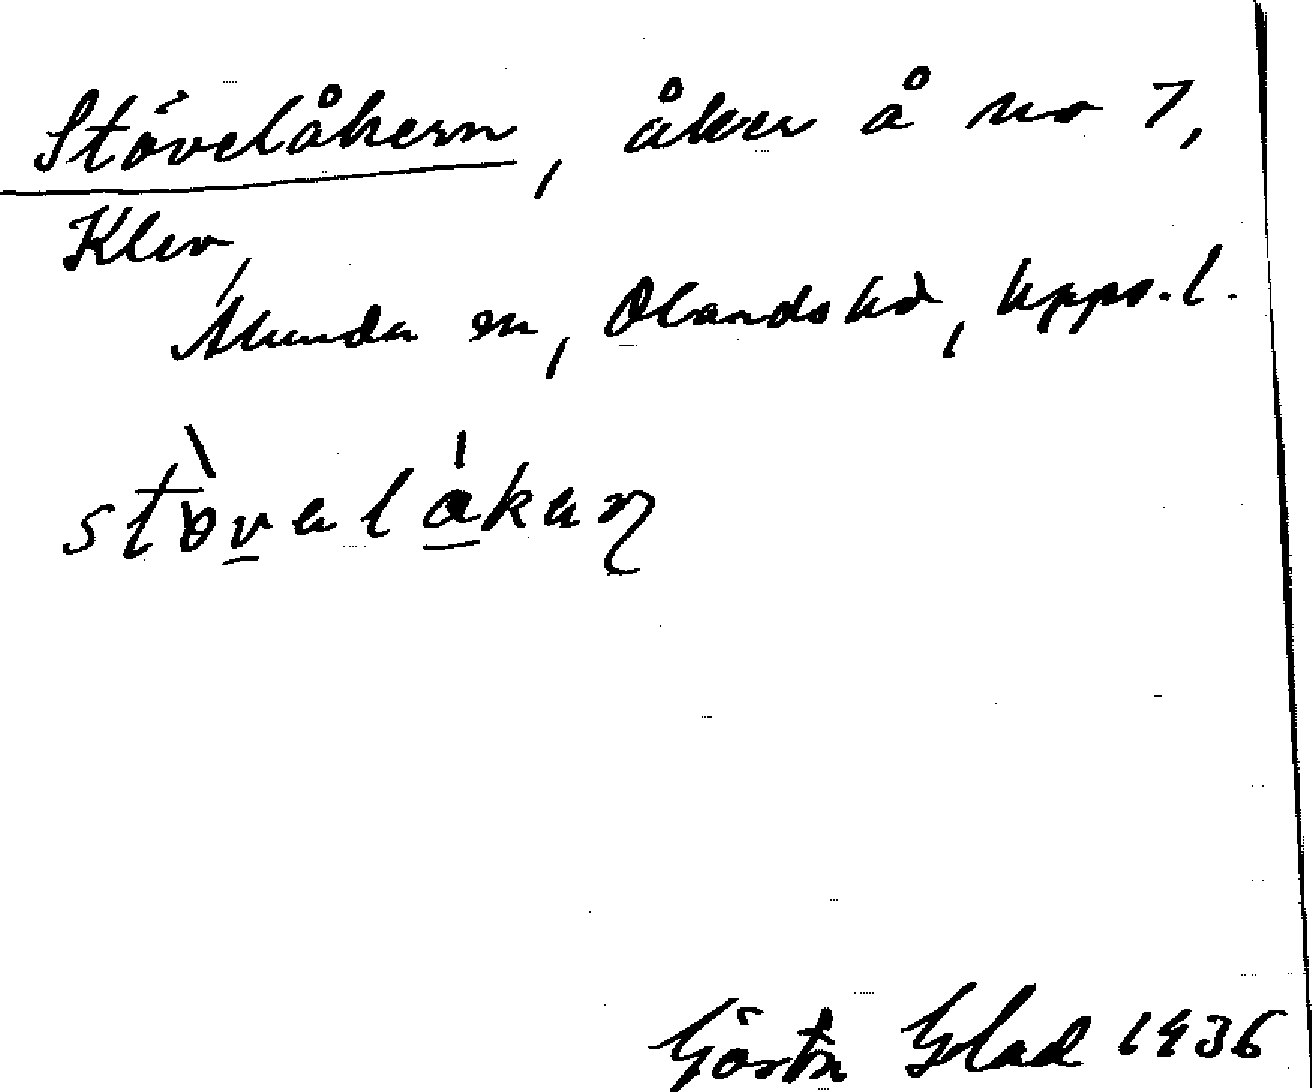 Stövelåkern, åker å no 7,
Klev,
Alunda sn, Olands hd, Upps. l.
stòvalákaɳ
Gösta Glad 1936